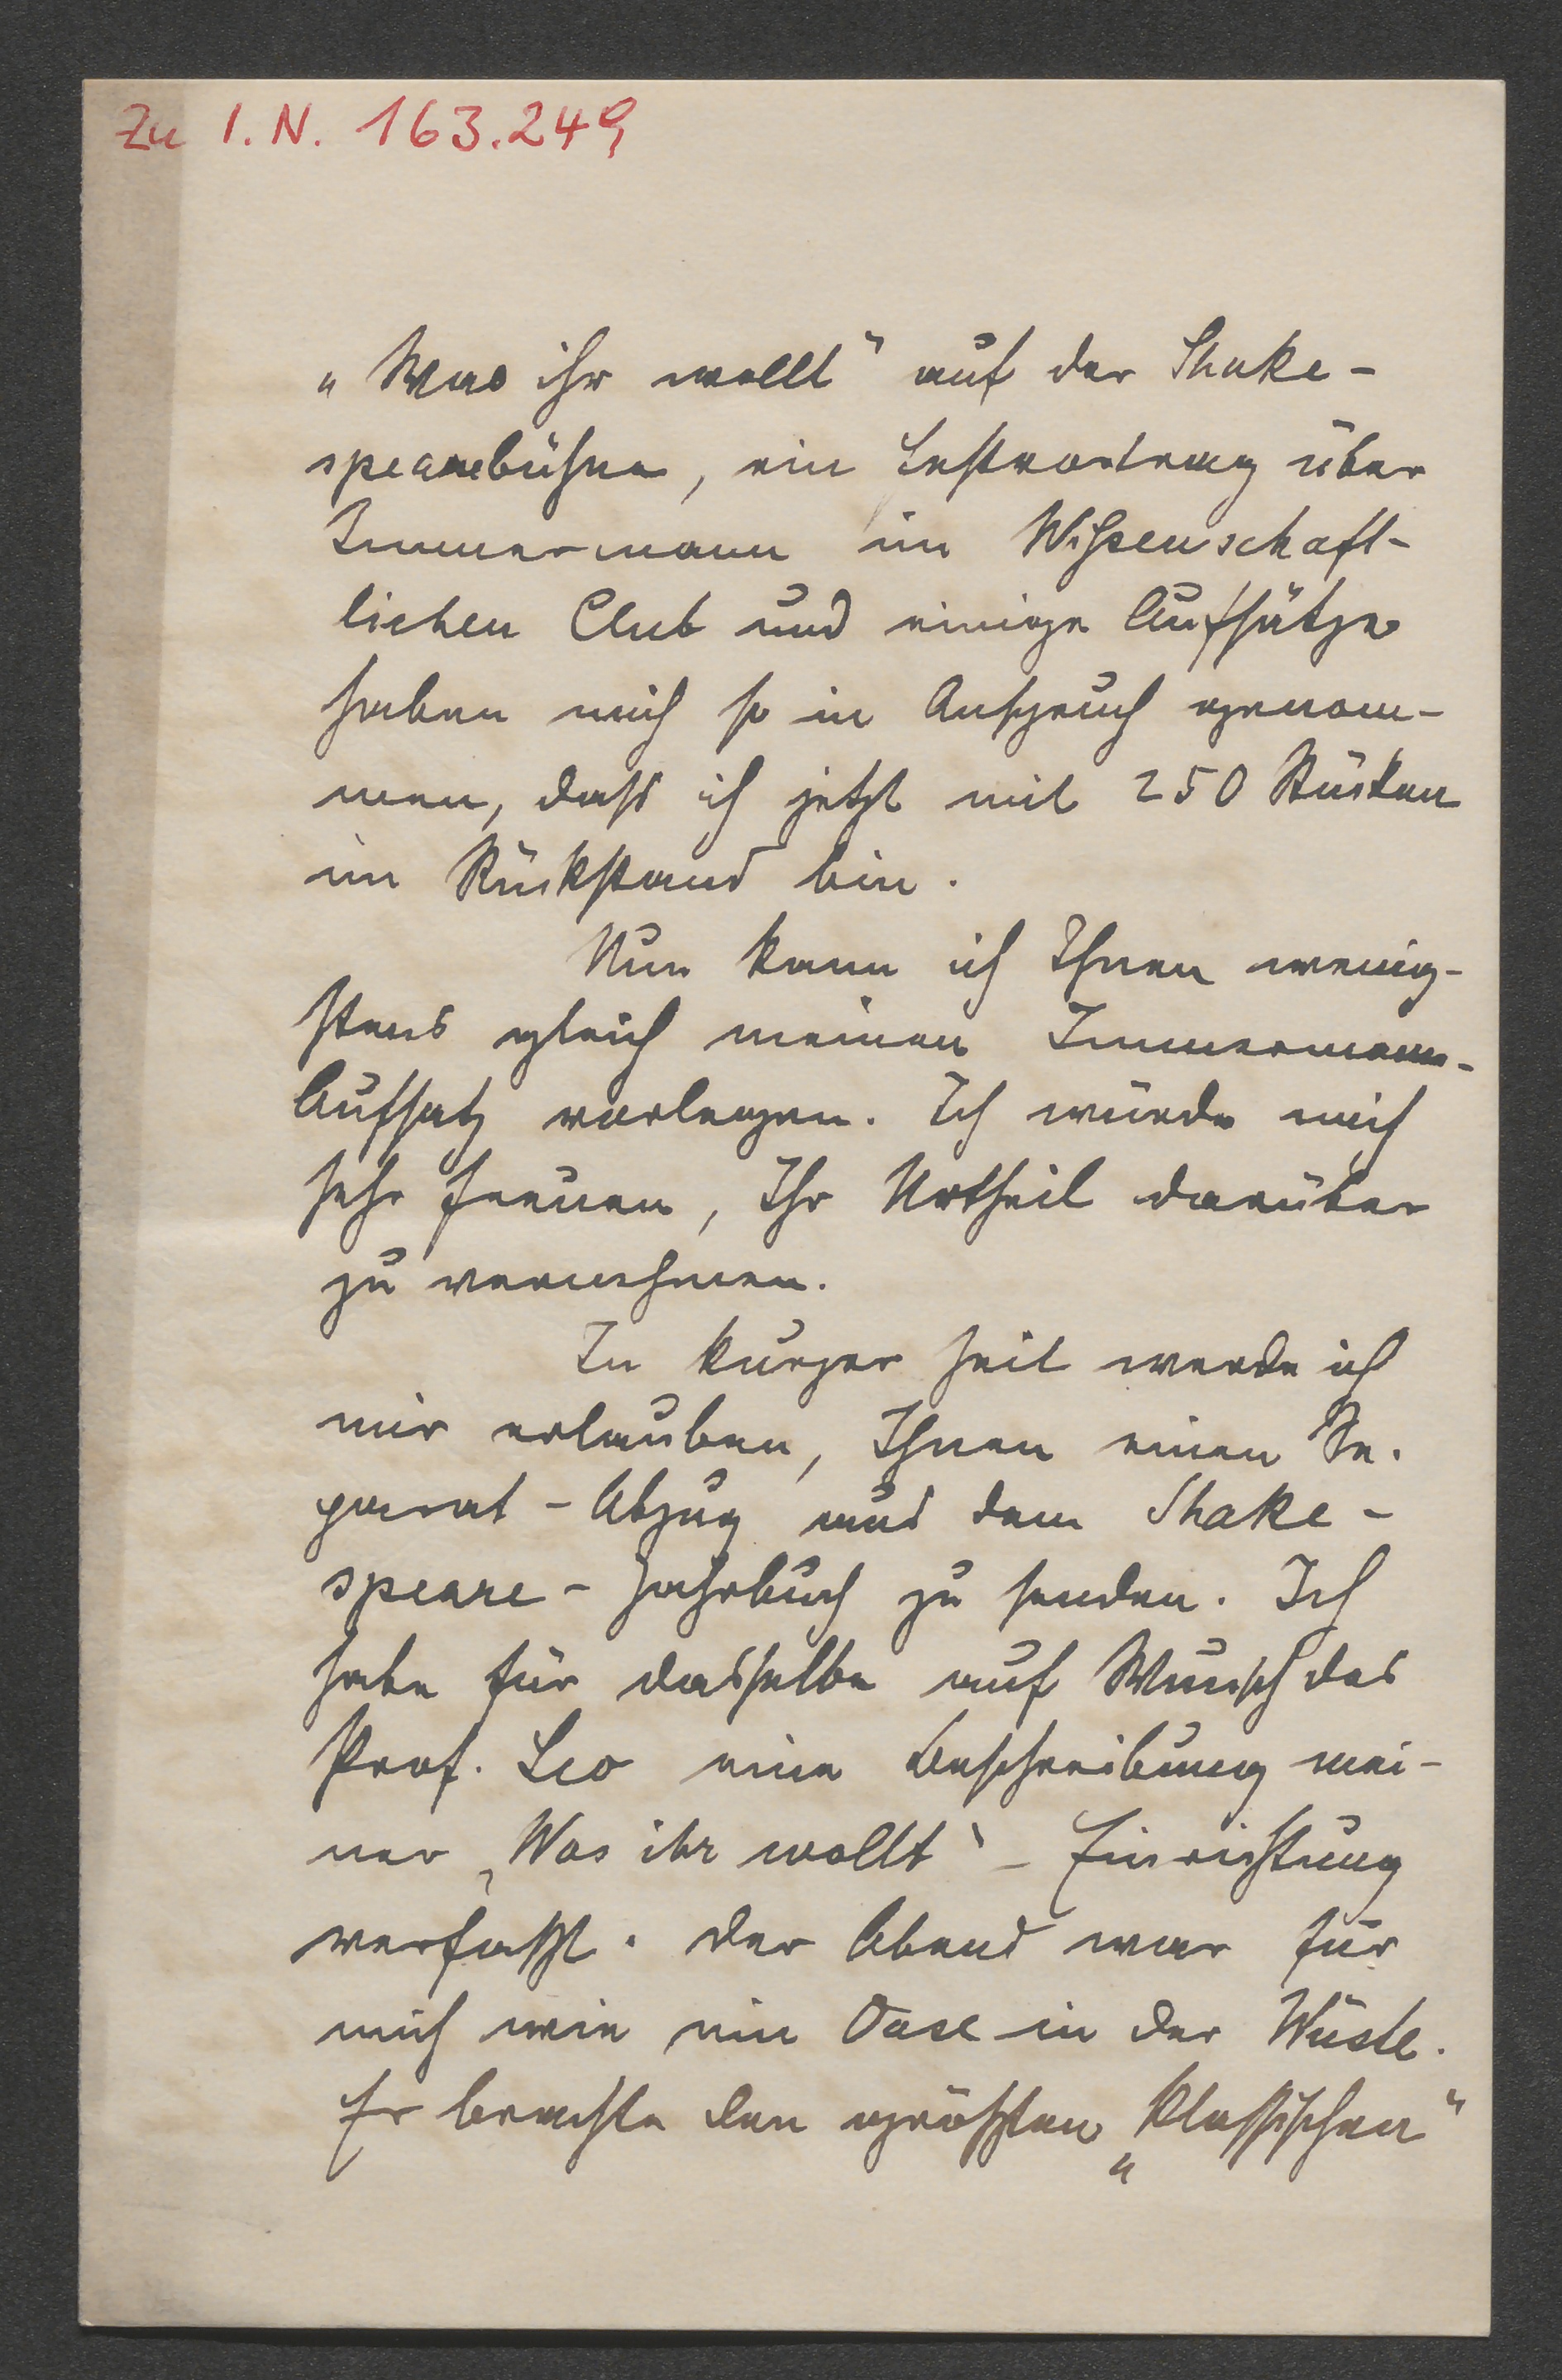 Zu I.N. 163.249
„Was ihr wollt" auf der Shake-
spearebühne, ein Festvortrag über
Immermann im Wissenschaft-
lichen Club und einige Aufsätze
haben mich so in Anspruch genom-
men, dass ich jetzt mit 250 Stücken
im Rückstand bin.
Nun kann ich Ihnen wenig-
stens gleich meinen Immermann-
Aufsatz vorlegen. Ich würde mich
sehr freuen, Ihr Urtheil darüber
zu vernehmen.
In kurzer Zeit werde ich
mir erlauben, Ihnen einen Se-
parat-Abzug aus dem Shake-
speare-Jahrbuch zu senden. Ich
habe für dasselbe auf Wunsch des
Prof. Leo eine Beschreibung mei-
ner „Was ihr wollt"-Einrichtung
verfasst. Der Abend war für
mich wie ein Oase in der Wüste.
Er brachte den grössten „klassischen"